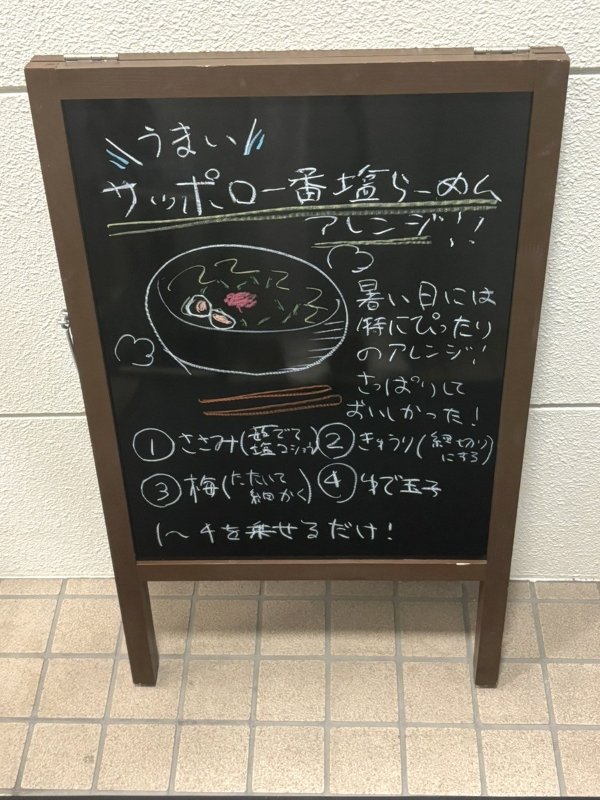 うまい
サッポロ一番塩らーめん
アレンジ!!
暑い日には
特にぴったり
のアレンジ!
さっぱりして
おいしかった!
① ささみ(茹でて塩コショウ) ② きゅうり(細切りにする)
③ 梅(たたいて細かく) ④ ゆで玉子
1〜4を乗せるだけ!